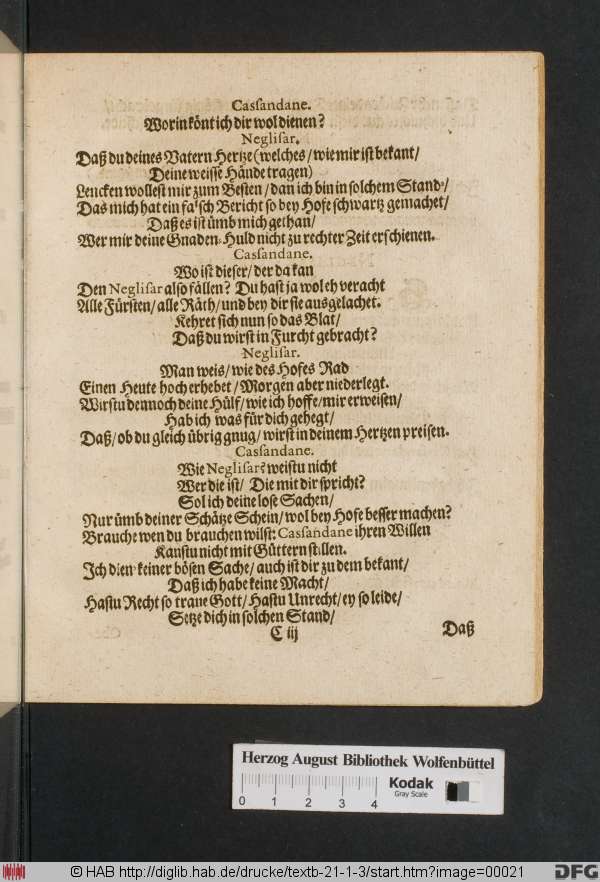 Casſandane.
Worin könt ich dir wol dienen?
Negliſar.
Daß du deines Vatern Hertze (welches / wie mir iſt bekant /
Deine weiſſe Hände tragen)
Lencken wolleſt mir zum Beſten / dan ich bin in ſolchem Stand- /
Das mich hat ein falſch Bericht ſo bey Hofe ſchwartz gemachet /
Daß es iſt ümb mich gethan /
Wer mir deine Gnaden-Huld nicht zu rechter Zeit erſchienen.
Casſandane.
Wo iſt dieſer / der da kan
Den Negliſar alſo fällen? Du haſt ja wol eh veracht
Alle Fürſten / alle Räth / und bey dir ſie ausgelachet.
Kehret ſich nun ſo das Blat /
Daß du wirſt in Furcht gebracht?
Negliſar.
Man weis / wie des Hofes Rad
Einen Heute hoch erhebet / Morgen aber niederlegt.
Wirſtu dennoch deine Hülf / wie ich hoffe / mir erweiſen /
Hab ich was für dich gehegt /
Daß / ob du gleich übrig gnug / wirſt in deinem Hertzen preiſen.
Casſandane.
Wie Negliſar? weiſtu nicht
Wer die iſt / Die mit dir ſpricht?
Sol ich deine loſe Sachen /
Nur ümb deiner Schätze Schein / wol bey Hofe beſſer machen?
Brauche wen du brauchen wilſt: Casſandane ihren Willen
Kanſtu nicht mit Güttern ſtillen.
Ich dien keiner böſen Sache / auch iſt dir zu dem bekant /
Daß ich habe keine Macht /
Haſtu Recht ſo traue Gott / Haſtu Unrecht / ey ſo leide /
Setze dich in ſolchen Stand /
C iij Daß
Herzog August Bibliothek Wolfenbüttel
0 1 2 3 4
Kodak
Gray Scale
© HAB http://diglib.hab.de/drucke/textb-21-1-3/start.htm?image=00021
DFG